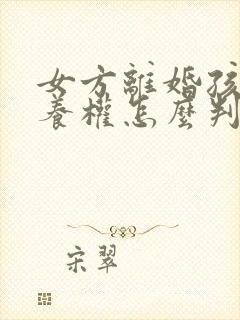 女方離婚孩
養權怎麼判
宋翠